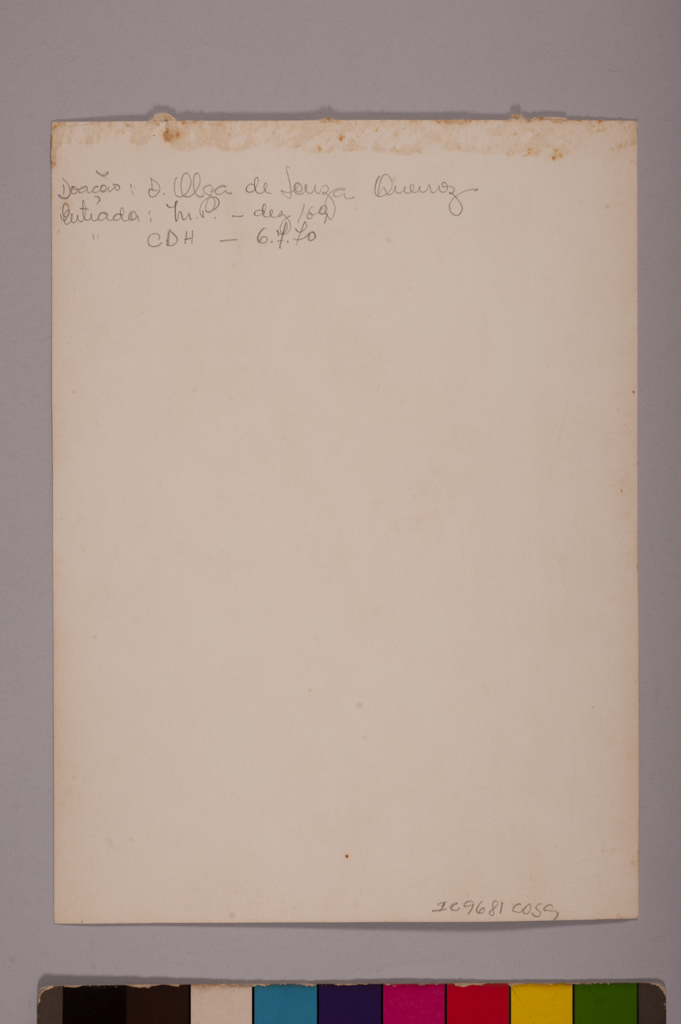 Doação: D. Olga de Souza Queiroz
Entrada: M.P. - dez/69
" CDH - 6.7.70
1C9681 COSG